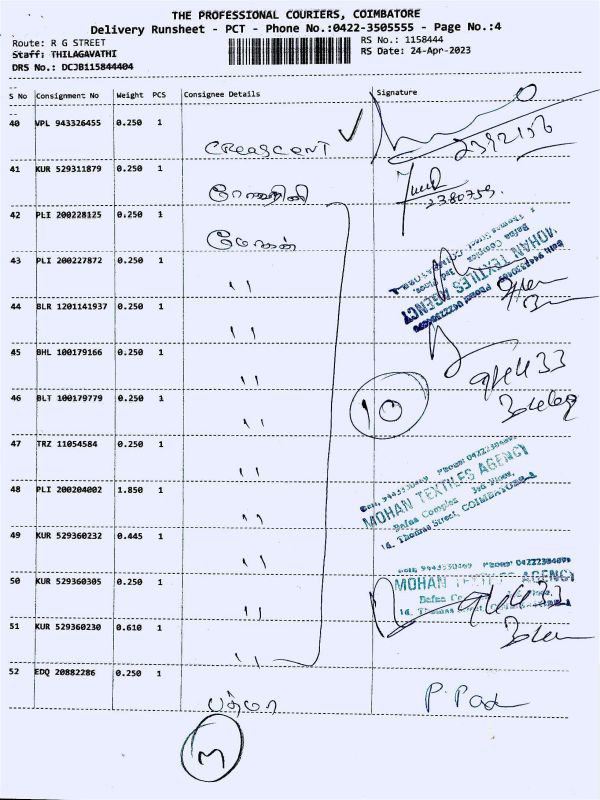 THE PROFESSIONAL COURIERS, COIMBATORE
Delivery Runsheet - PCT - Phone No.:0422-3505555 - Page No.:4
Route: R G STREET
RS No.: 1158444
Staff: THILAGAVATHI
RS Date: 24-Apr-2023
DRS No.: DCJB115844404
S No Consignment No Weight PCS Consignee Details Signature
40 VPL 943326455 0.250 1 CREASCENT 2392156
41 KUR 529311879 0.250 1 2380759.
42 PLI 200228125 0.250 1 மோகன்
43 PLI 200227872 0.250 1 ''
MOHAN TEXTILES AGENCY
44 BLR 1201141937 0.250 1 ''
45 BHL 100179166 0.250 1 ''
46 BLT 100179779 0.250 1 '' 10
47 TRZ 11054584 0.250 1 ''
48 PLI 200204002 1.850 1 ''
Cell, 9443530469 Phone: 04222384699
MOHAN TEXTILES AGENCY
Bafna Complex 3rd Floor,
14, Thomas Street, COIMBATORE-1
49 KUR 529360232 0.445 1 ''
50 KUR 529360305 0.250 1 ''
Cell, 9443530469 Phone: 04222384699
MOHAN TEXTILES AGENCY
51 KUR 529360230 0.610 1 ''
52 EDQ 20882286 0.250 1 பத்மா